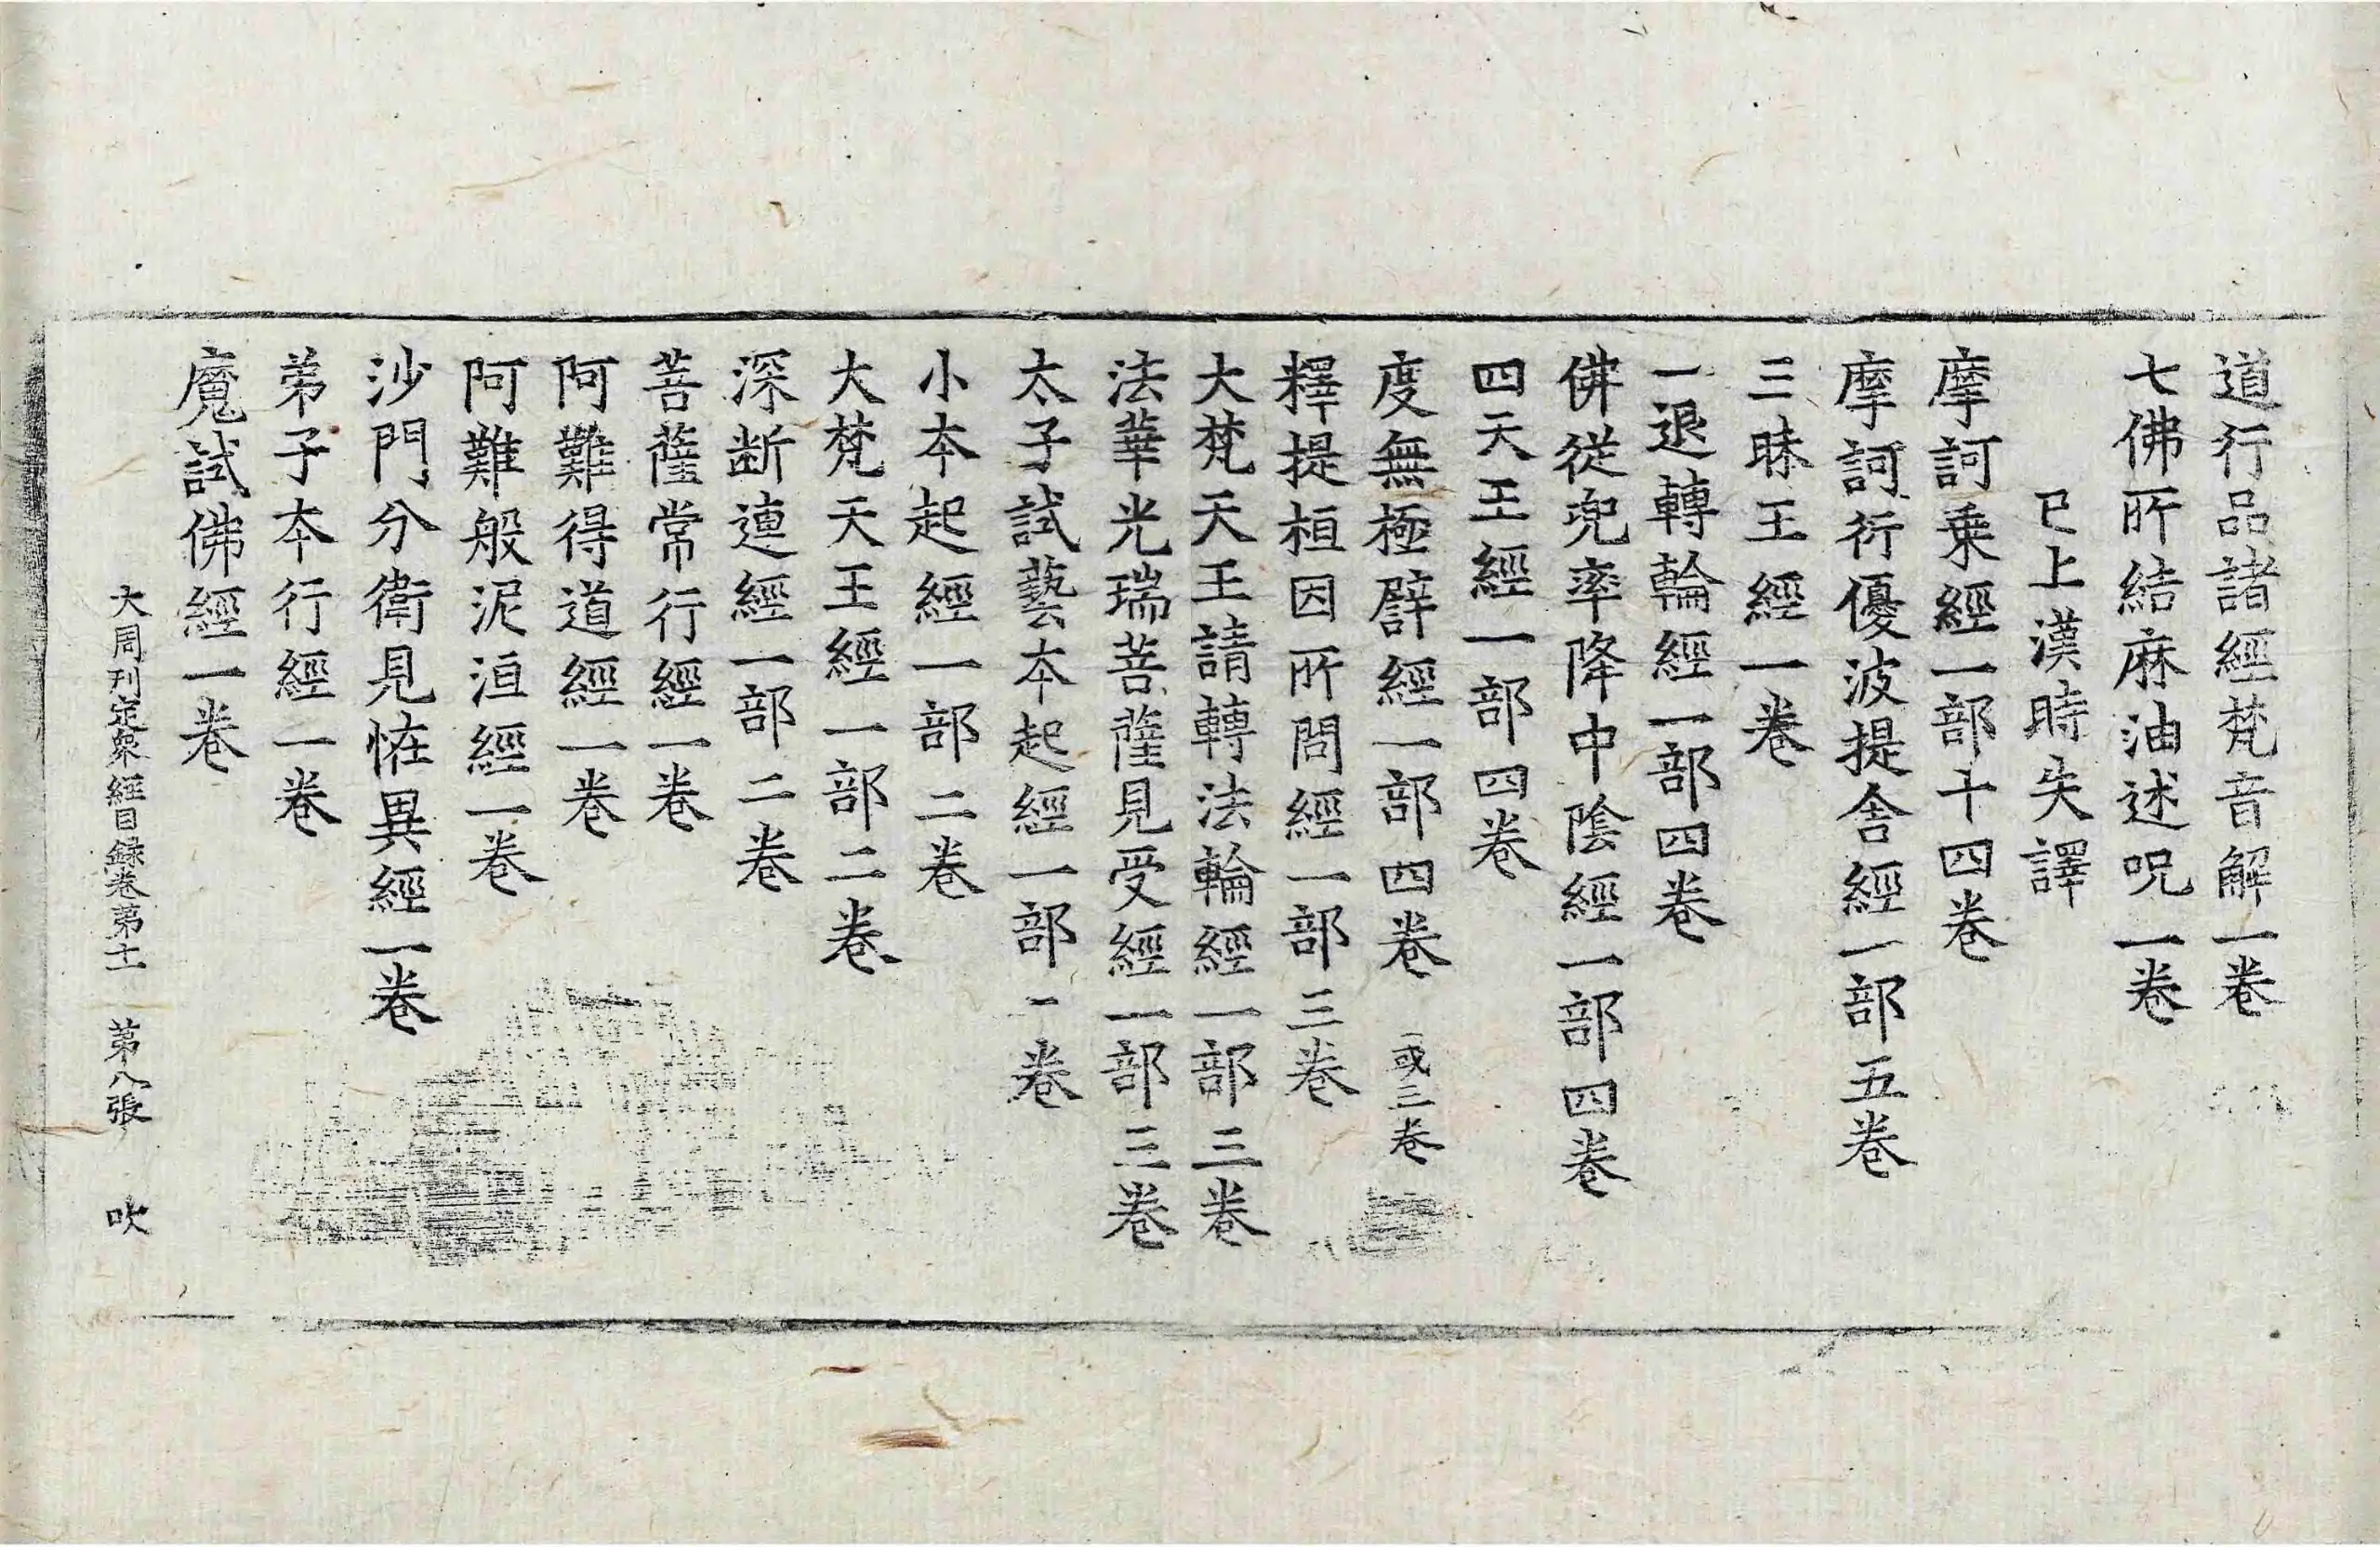 道行品諸經梵音解一卷
七佛所結麻油述呪一卷
已上漢時失譯
摩訶乗經一部十四卷
摩訶衍優波提舍經一部五卷
三昧王經一卷
一退轉輪經一部四卷
佛從兜率降中陰經一部四卷
四天王經一部四卷
度無極譬經一部四卷 一或三卷
釋提桓因所問經一部三卷
大梵天王請轉法輪經一部三卷
法華光瑞菩薩見受經一部三卷
太子試藝本起經一部一卷
小本起經一部二卷
大梵天王經一部二卷
深断連經一部二卷
菩薩常行經一卷
阿難得道經一卷
阿難般泥洹經一卷
沙門分衛見恠異經一卷
弟子本行經一卷
魔試佛經一卷
大周刊定衆經目録卷第十一 第八張 吹